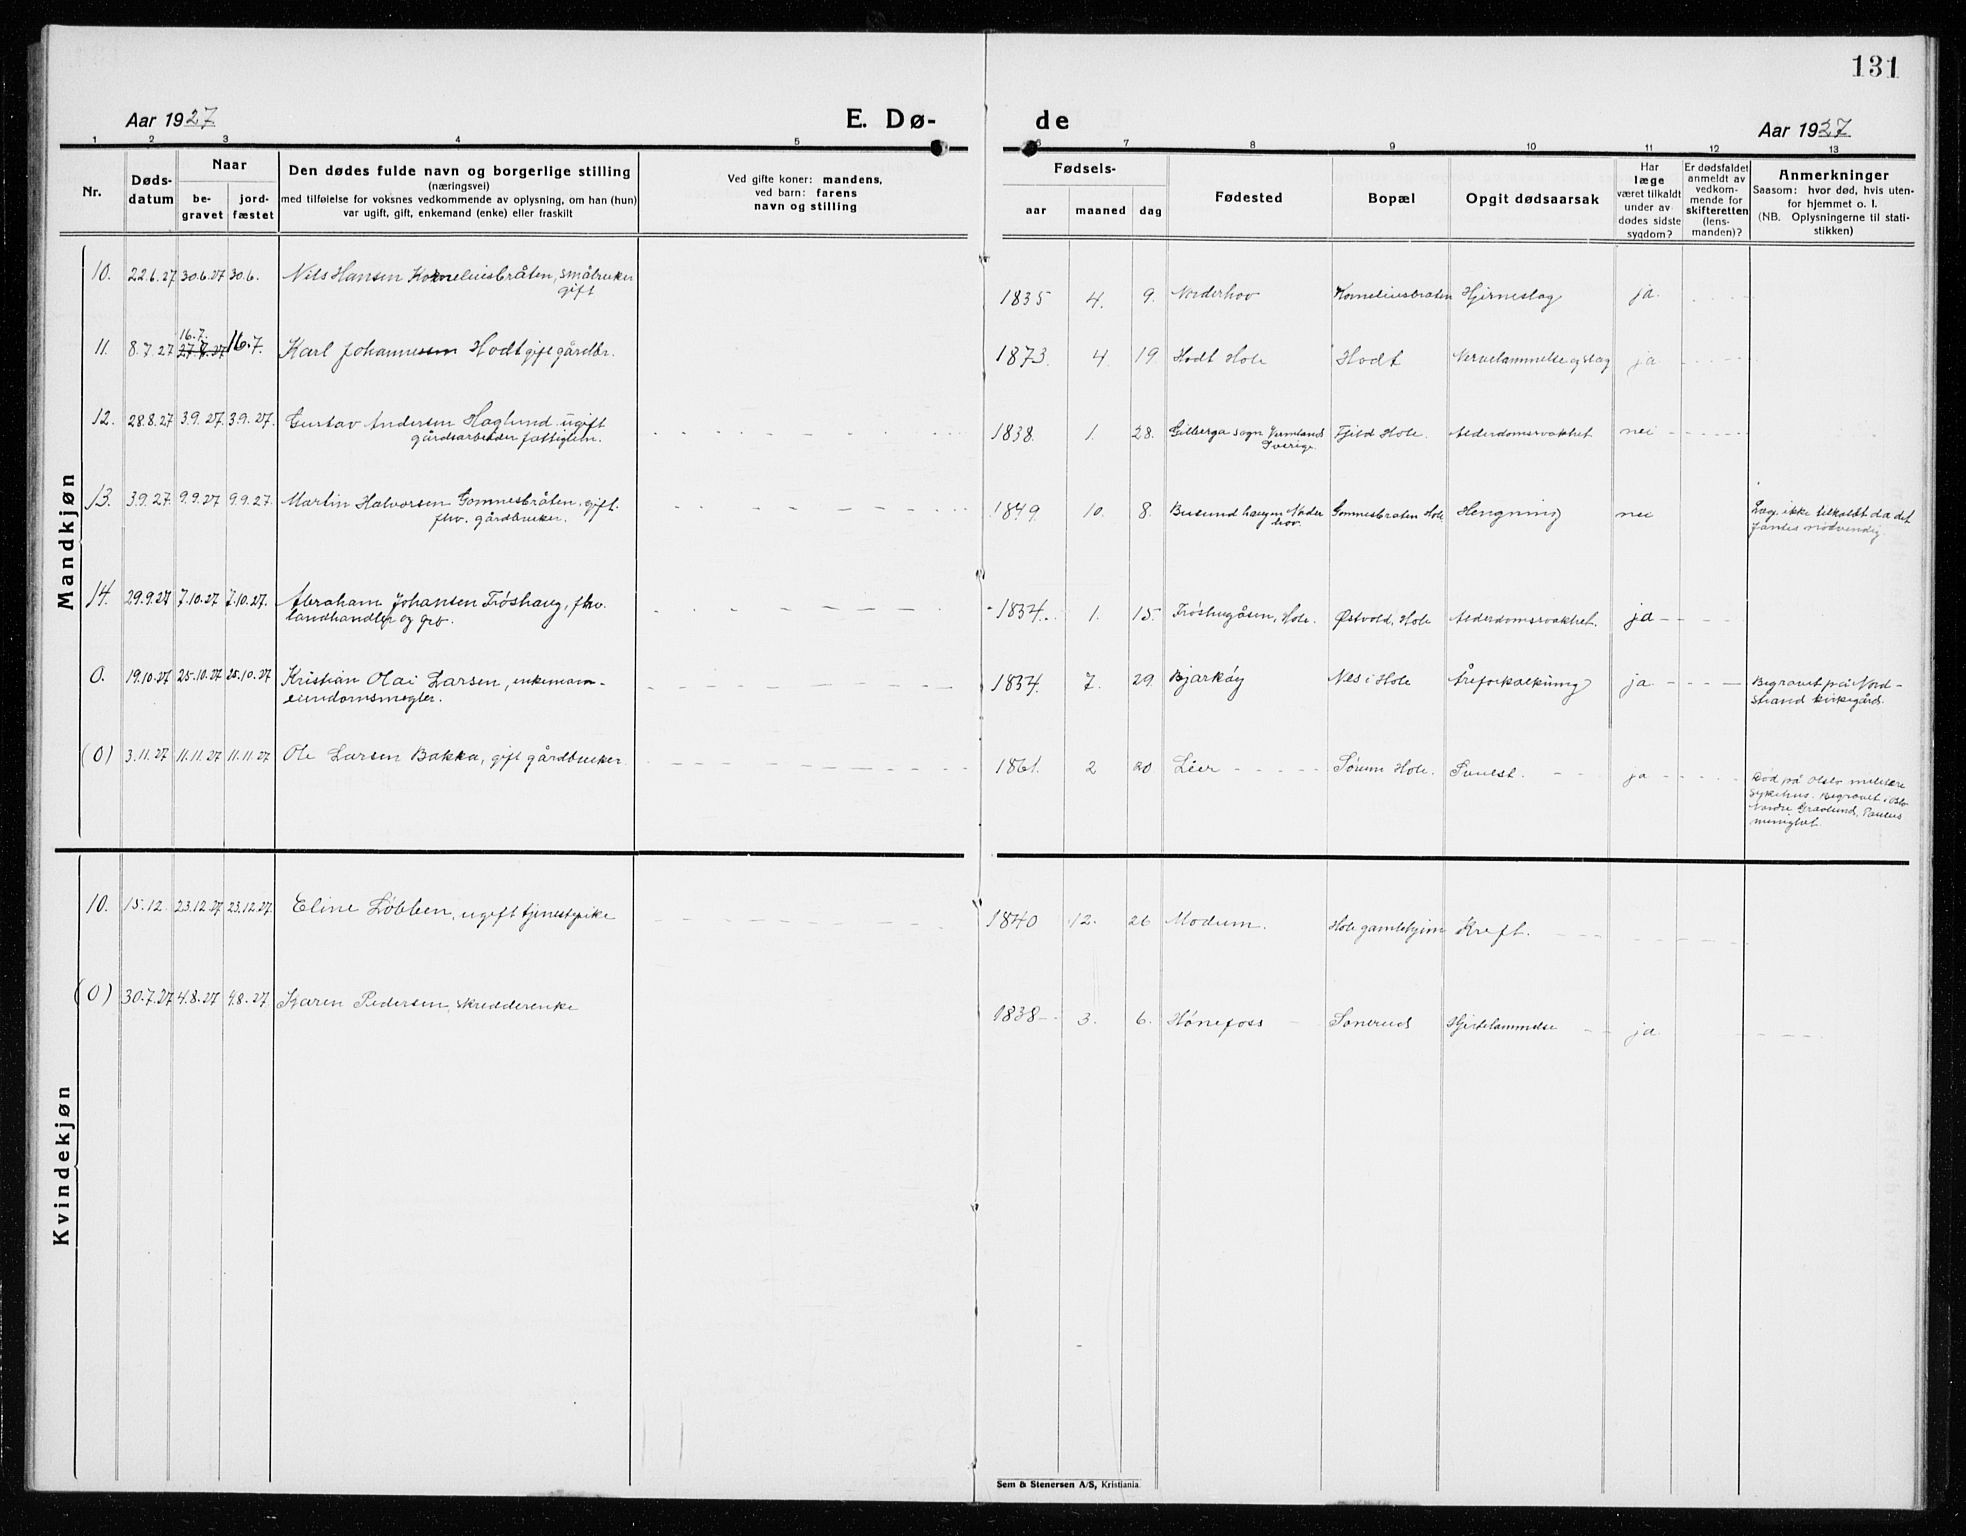 131
Aar 1927 E. Dø- de Aar 1927
1 2 3 4 5 6 7 8 9 10 11 12 13
Nr. Døds-datum Naar be-gravet jord-fæstet
Den dødes fulde navn og borgerlige stilling
(næringsvei)
med tilføielse for voksnes vedkommende av oplysning, om han (hun)
var ugift, gift, enkemand (enke) eller fraskilt
Ved gifte koner: mandens,
ved barn: farens
navn og stilling
Fødsels- aar maaned dag
Fødested
Bopæl
Opgit dødsaarsak
Har
læge
været tilkaldt
under av
dødes sidste
sygdom?
Er dødsfaldet
anmeldt av
vedkom-
mende for
skifteretten
(lens-
manden)?
Anmerkninger
Saasom: hvor død, hvis uten-
for hjemmet o. l.
(NB. Oplysningerne til stati-
stikken)
Mandkjøn
10. 22.6.27 30.6.27 30.6. Nils Hansen Korneliusbråten, småbruker
gift
1835 4. 9. Norderhov Korneliusbraten Hjerneslag ja
16.7.
11. 8.7.27 27.7.27 16.7. Karl Johannessen Hodt gift gårdbr.
1873. 4. 19. Hodt Hole Hodt Nervelammelse og slag ja
12. 28.8.27 3.9.27. 3.9.27. Gustav Andersen Haglund ugift
gårdsarbeider fattiglem.
1838. 1. 28. Gilberga sogn Vermland Sverige Fjeld Hole. Alderdomssvakhet nei
13. 3.9.27. 9.9.27 9.9.27. Martin Halvorsen Gomnesbråten. gift.
fhv. gårdbruker.
1849. 10. 8. Busund haugen Norder
hov. Gomnesbraten Hole Hengning nei Læge ikke tilkaldt da det
fantes nødvendig
14. 29.9.27 7.10.27 7.10.27. Abraham Johansen Frøshaug, fhv.
landhandler og grb.
1834. 1. 15. Frøshugåsen, Hole. Østvold, Hole Alderdomssvakhet. ja
0. 19.10.27 25.10.27 25.10.27 Kristian Olai Larsen, enkemann
eiendomsmegler.
1834. 7. 29 Bjarköy Nes i Hole Åreforkalkning ja Begravet på Nord-
strand kirkegård.
(0) 3.11.27 11.11.27 11.11.27 Ole Larsen Bakka, gift gårdbruker
1861. 2 20. Lier Sørum Hole. ja Død på Oslo militære
sykehus. Begravet i Oslo
Nordre Gravlund, Paulus
menighet.
Kvindekjøn
10. 15.12. 23.12.27 23.12.27. Eline Løbben, ugift tjenestepike
1840 12. 26 Modum. Hole gamlehjem Kreft.
(0) 30.7.27 4.8.27 4.8.27 Karen Pedersen, skredderenke
1838 3. 6. Hønefoss Sonerud Hjertelammelse ja
Sem & Stenersen A/S, Kristiania